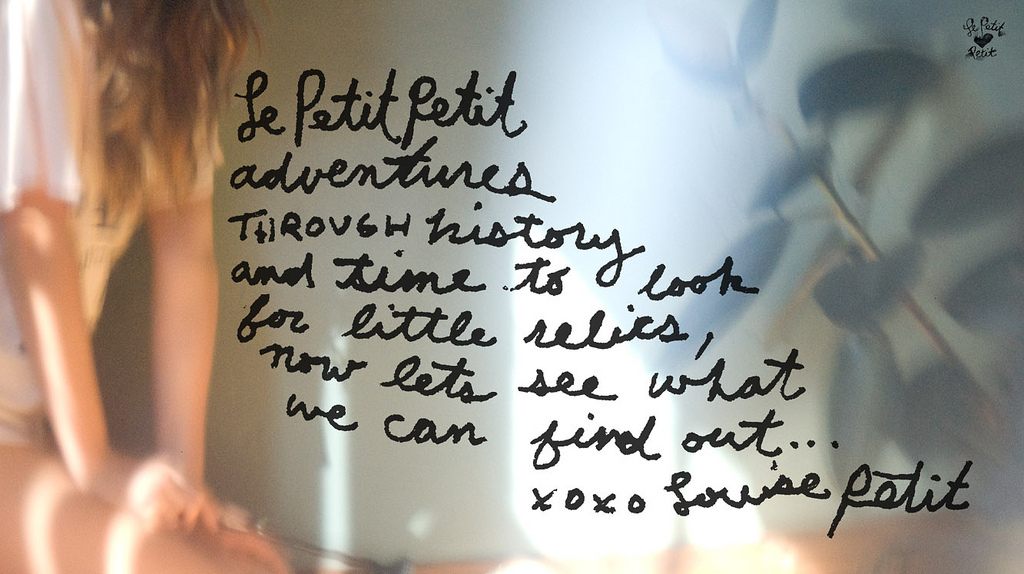 Le Petit
Petit
Le Petit Petit
adventures
THROUGH history
and time to look
for little relics,
now lets see what
we can find out...
xoxo Louise Petit